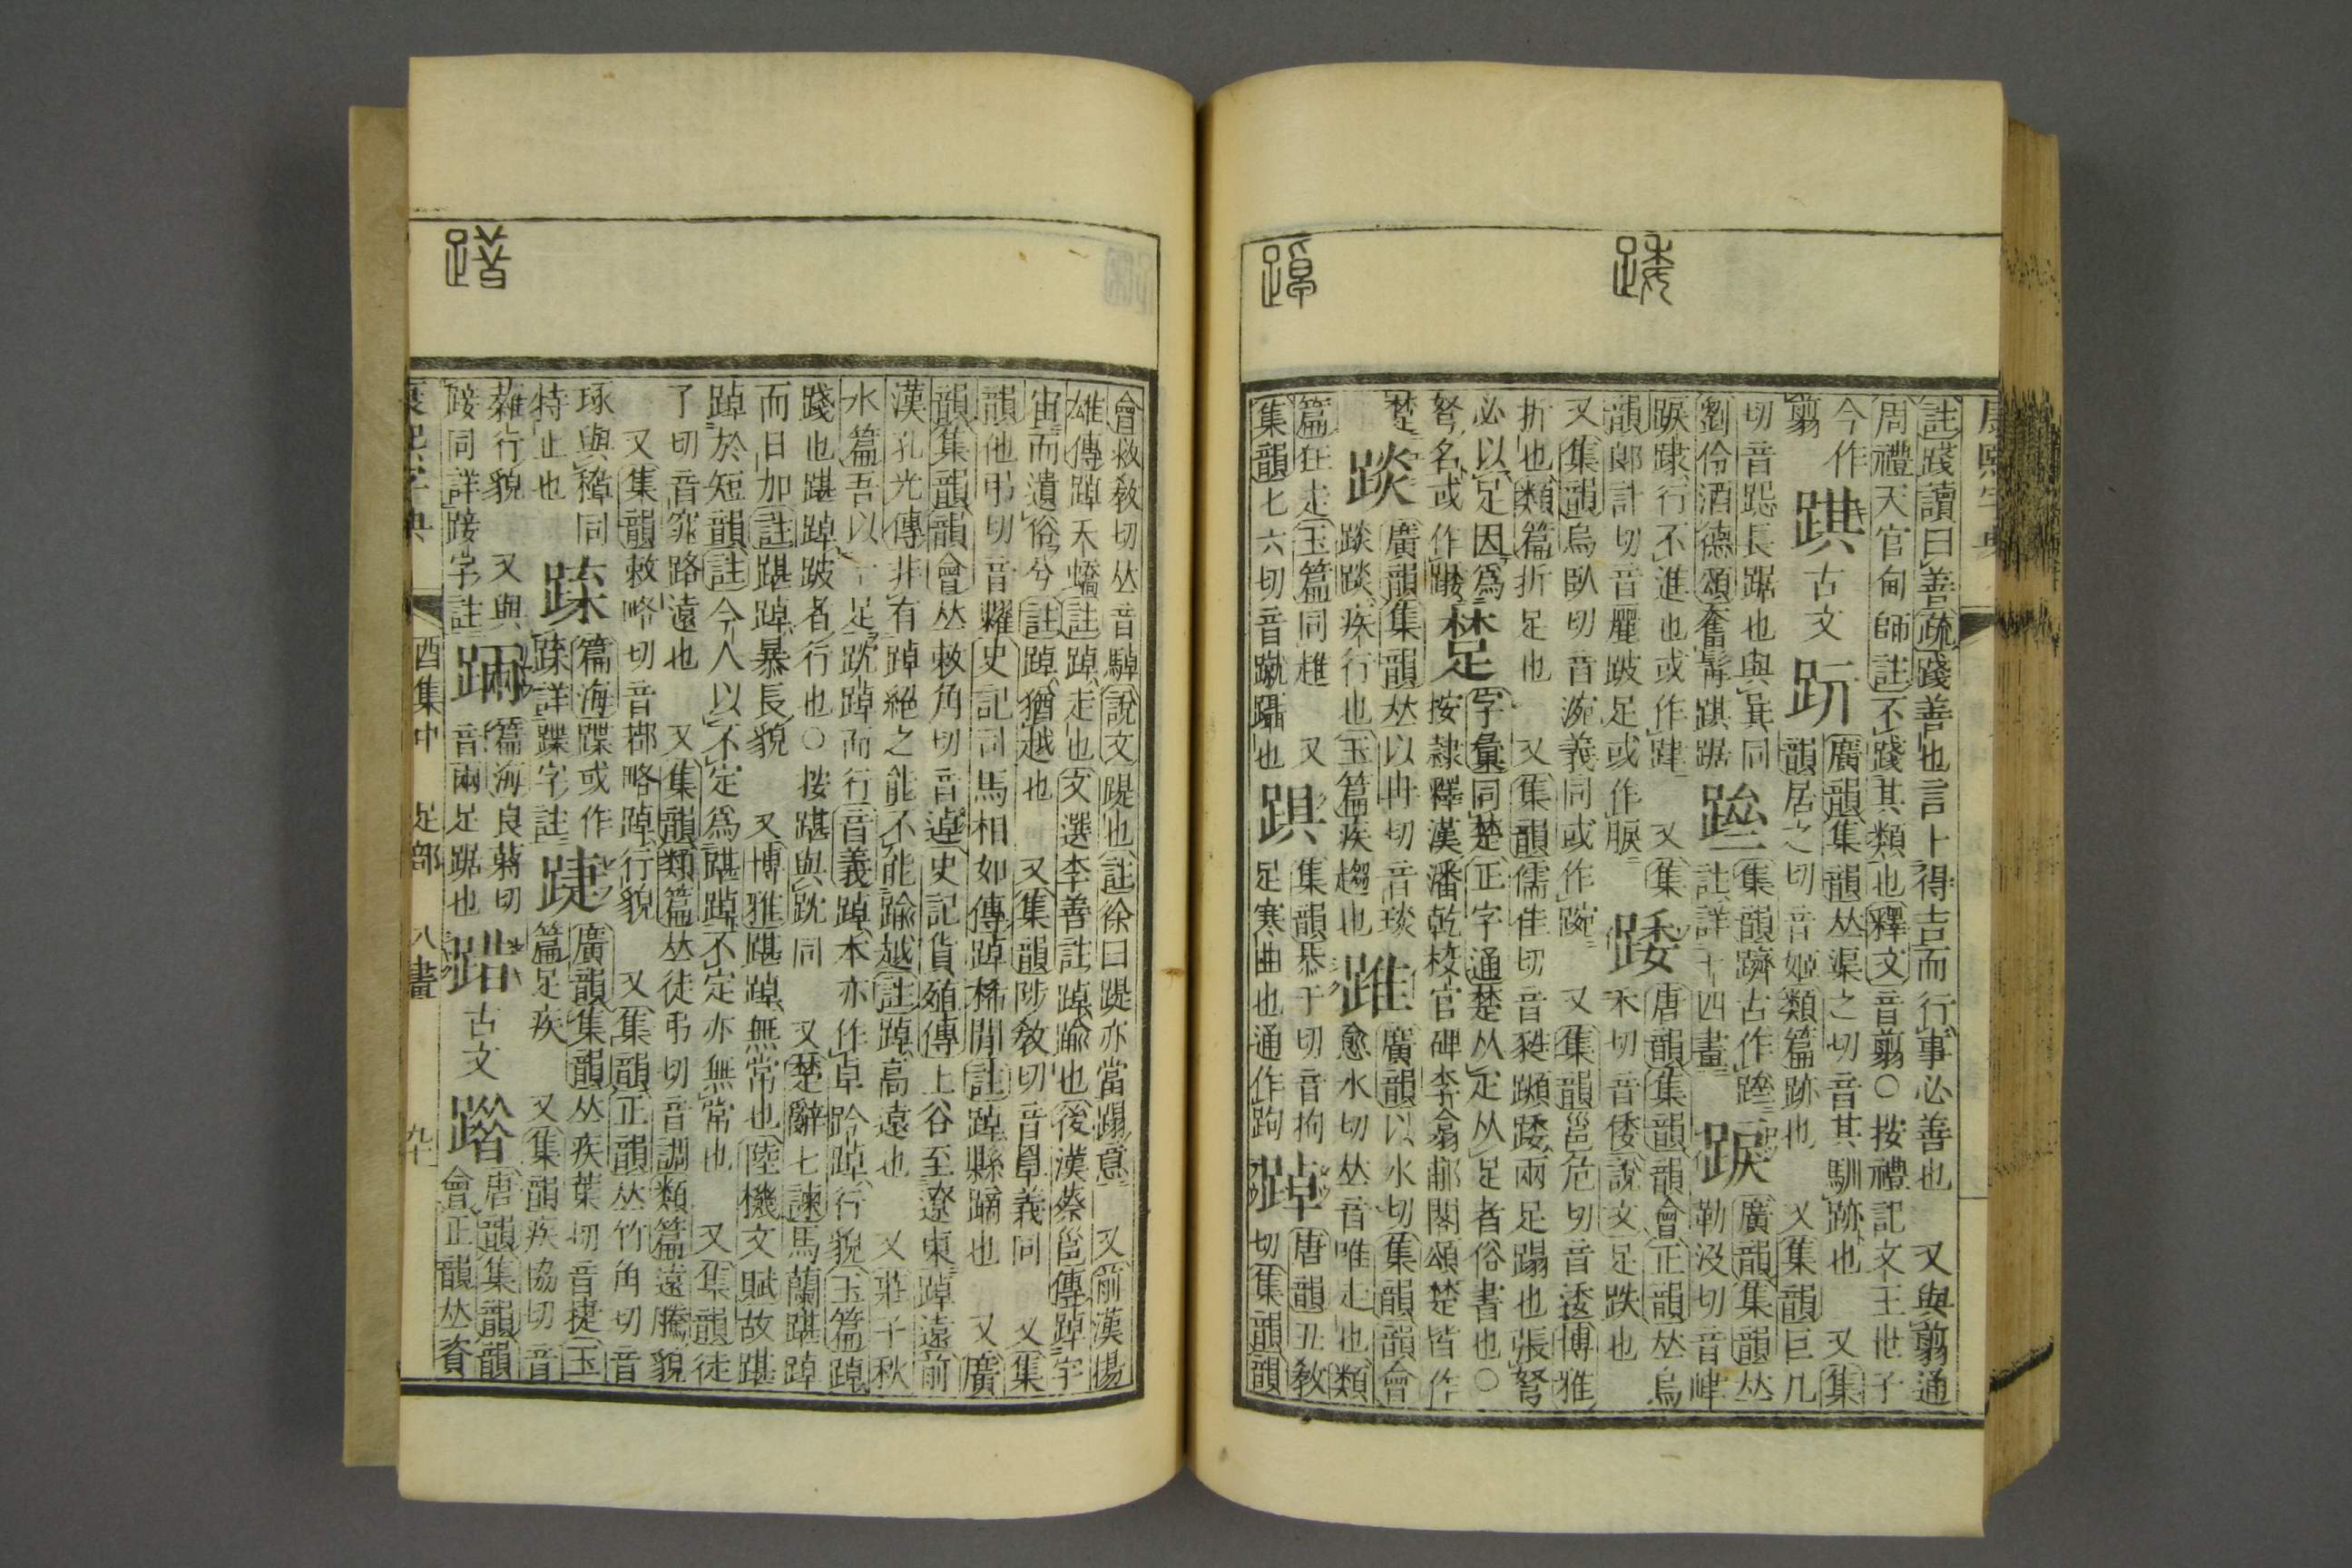 註踐讀曰善疏踐善也言卜得吉而行事必善也　又與翦通
周禮天官甸師註不踐其類也釋文音翦○按禮記文王世子
今作翦
踑
古文
趼
廣韻集韻𠀤渠之切音其馴跡也　又集
韻居之切音姬類篇跡也　又集韻巨几
切音跽長踞也與㠱同
劉伶酒德頌奮髯踑踞
集韻躋古作
註詳十四畫
踜
廣韻集韻𠀤
勒沒切音硉
踜行不進也或作
韻郎計切音麗跛足或作　又集
踒
唐韻集韻韻會正韻𠀤烏
禾切音倭說文足跌也
又集韻烏臥切音涴義同或作踠　又集韻邕危切音逶博雅
折也類篇折足也　又集韻儒佳切音甤蹞踒兩足蹋也張弩
必以足因爲
弩名或作
楚
字彙同楚正字通楚从疋从足者俗書也○
按隸釋漢潘乾校官碑李翕郙閣頌楚皆作
踥
廣韻集韻𠀤以冉切音琰
踥踥疾行也玉篇疾趨也
踓
廣韻以水切集韻韻會
愈水切𠀤音唯走也類
篇狂走玉篇同趡　又
集韻七六切音蹴躡也
跔
集韻恭于切音拘
足寒曲也通作跔
踔
唐韻丑敎
切集韻韻
會敕敎切𠀤音䮓說文踶也註徐曰踶亦當蹋意　又前漢揚
雄傳踔夭蟜註踔走也文選李善註踔踰也後漢蔡邕傳踔宇
宙而遺俗兮註踔猶越也　又集韻陟敎切音罩義同　又集
韻他弔切音糶史記司馬相如傳踔稀閒註踔縣蹢也　又廣
韻集韻韻會𠀤敕角切音逴史記貨殖傳上谷至遼東踔遠前
漢孔光傳非有踔絕之能不能踰越註踔高遠也　又莊子秋
水篇吾以一足趻踔而行音義踔本亦作卓趻踔行貌玉篇踔
踐也踸踔跛者行也○按踸與趻同　又楚辭七諫馬蘭踸踔
而日加註踸踔暴長貌　又博雅踸踔無常也陸機文賦故踸
踔於短韻註今人以不定爲踸踔不定亦無常也　又集韻徒
了切音窕路遠也　又集韻類篇𠀤徒弔切音調類篇遠騰貌
又集韻敕略切音㚟略踔行貌　又集韻正韻𠀤竹角切音
琢與穛同
特止也
篇海蹀或作
詳蹀字註
踕
廣韻集韻𠀤疾葉切音捷玉
篇足疾　又集韻疾協切音
蕵行貌　又與
踥同詳踥字註
䠃
篇海良蔣切
音兩足踞也
踖
古文
唐韻集韻韻
會正韻𠀤資
康熙字典
酉集中　足部　八畫　九十
康熙字典